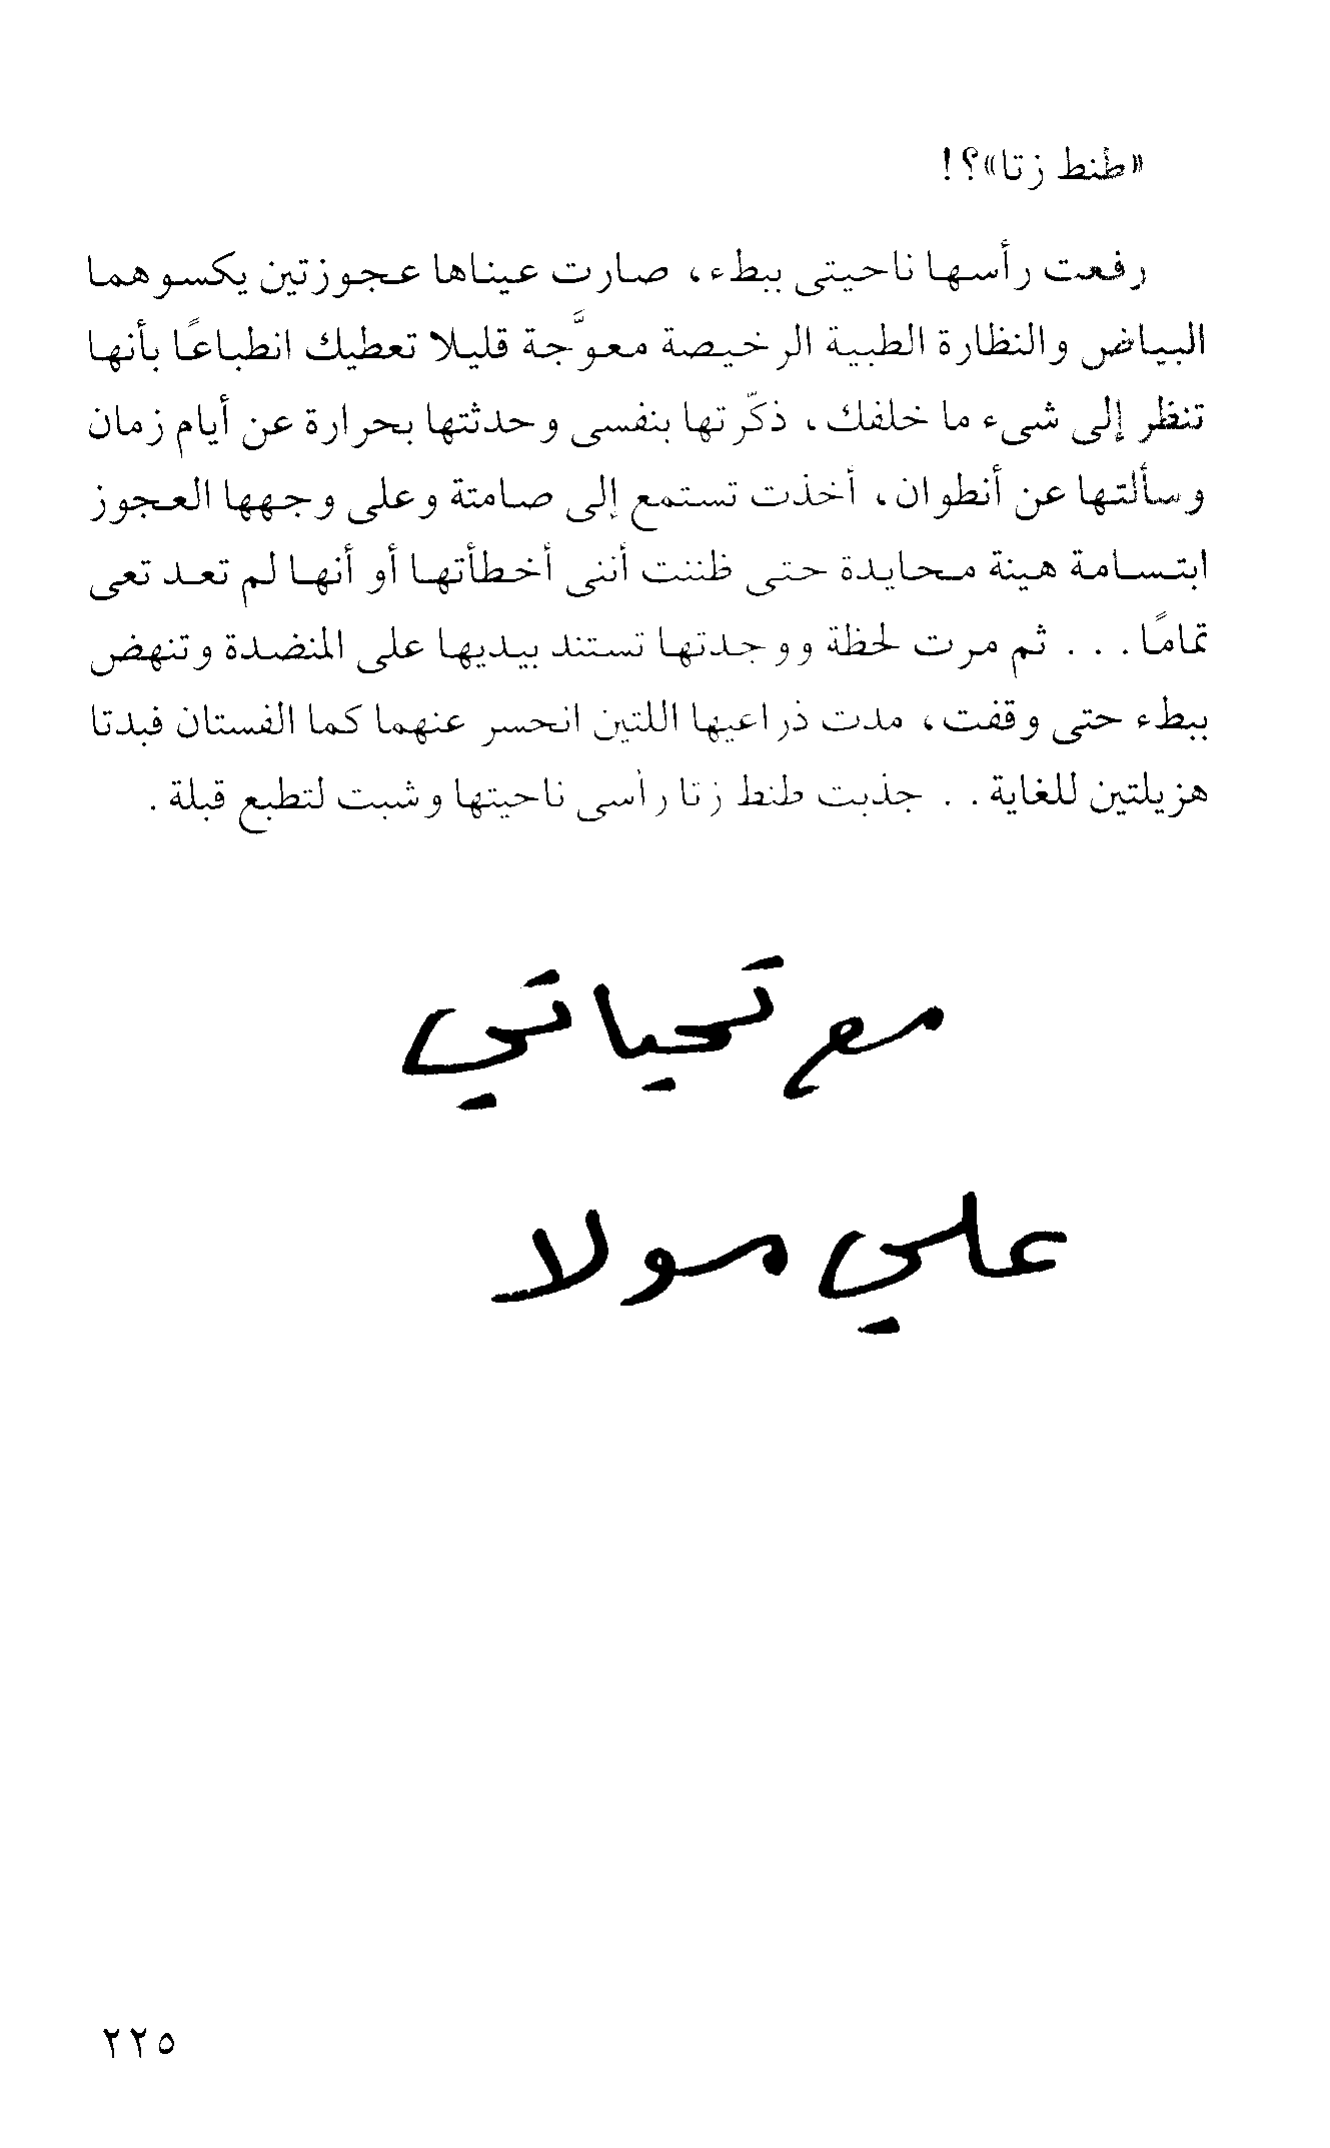 «طنط زتا»؟!
رفعت رأسها ناحيتى ببطء، صارت عيناها عجوزتين يكسوهما
البياض والنظارة الطبية الرخيصة معوَّجة قليلا تعطيك انطباعًا بأنها
تنظر إلى شىء ما خلفك، ذكّرتها بنفسى وحدثتها بحرارة عن أيام زمان
وسألتها عن أنطوان، أخذت تستمع إلى صامتة وعلى وجهها العجوز
ابتسامة هينة محايدة حتى ظننت أننى أخطأتها أو أنها لم تعد تعى
تمامًا . . . ثم مرت لحظة ووجدتها تستند بيديها على المنضدة وتنهض
ببطء حتى وقفت، مدت ذراعيها اللتين انحسر عنهما كما الفستان فبدتا
هزيلتين للغاية . . جذبت طنط زتا رأسى ناحيتها وشبت لتطبع قبلة .
مع تحياتي
علي مولا
٢٢٥